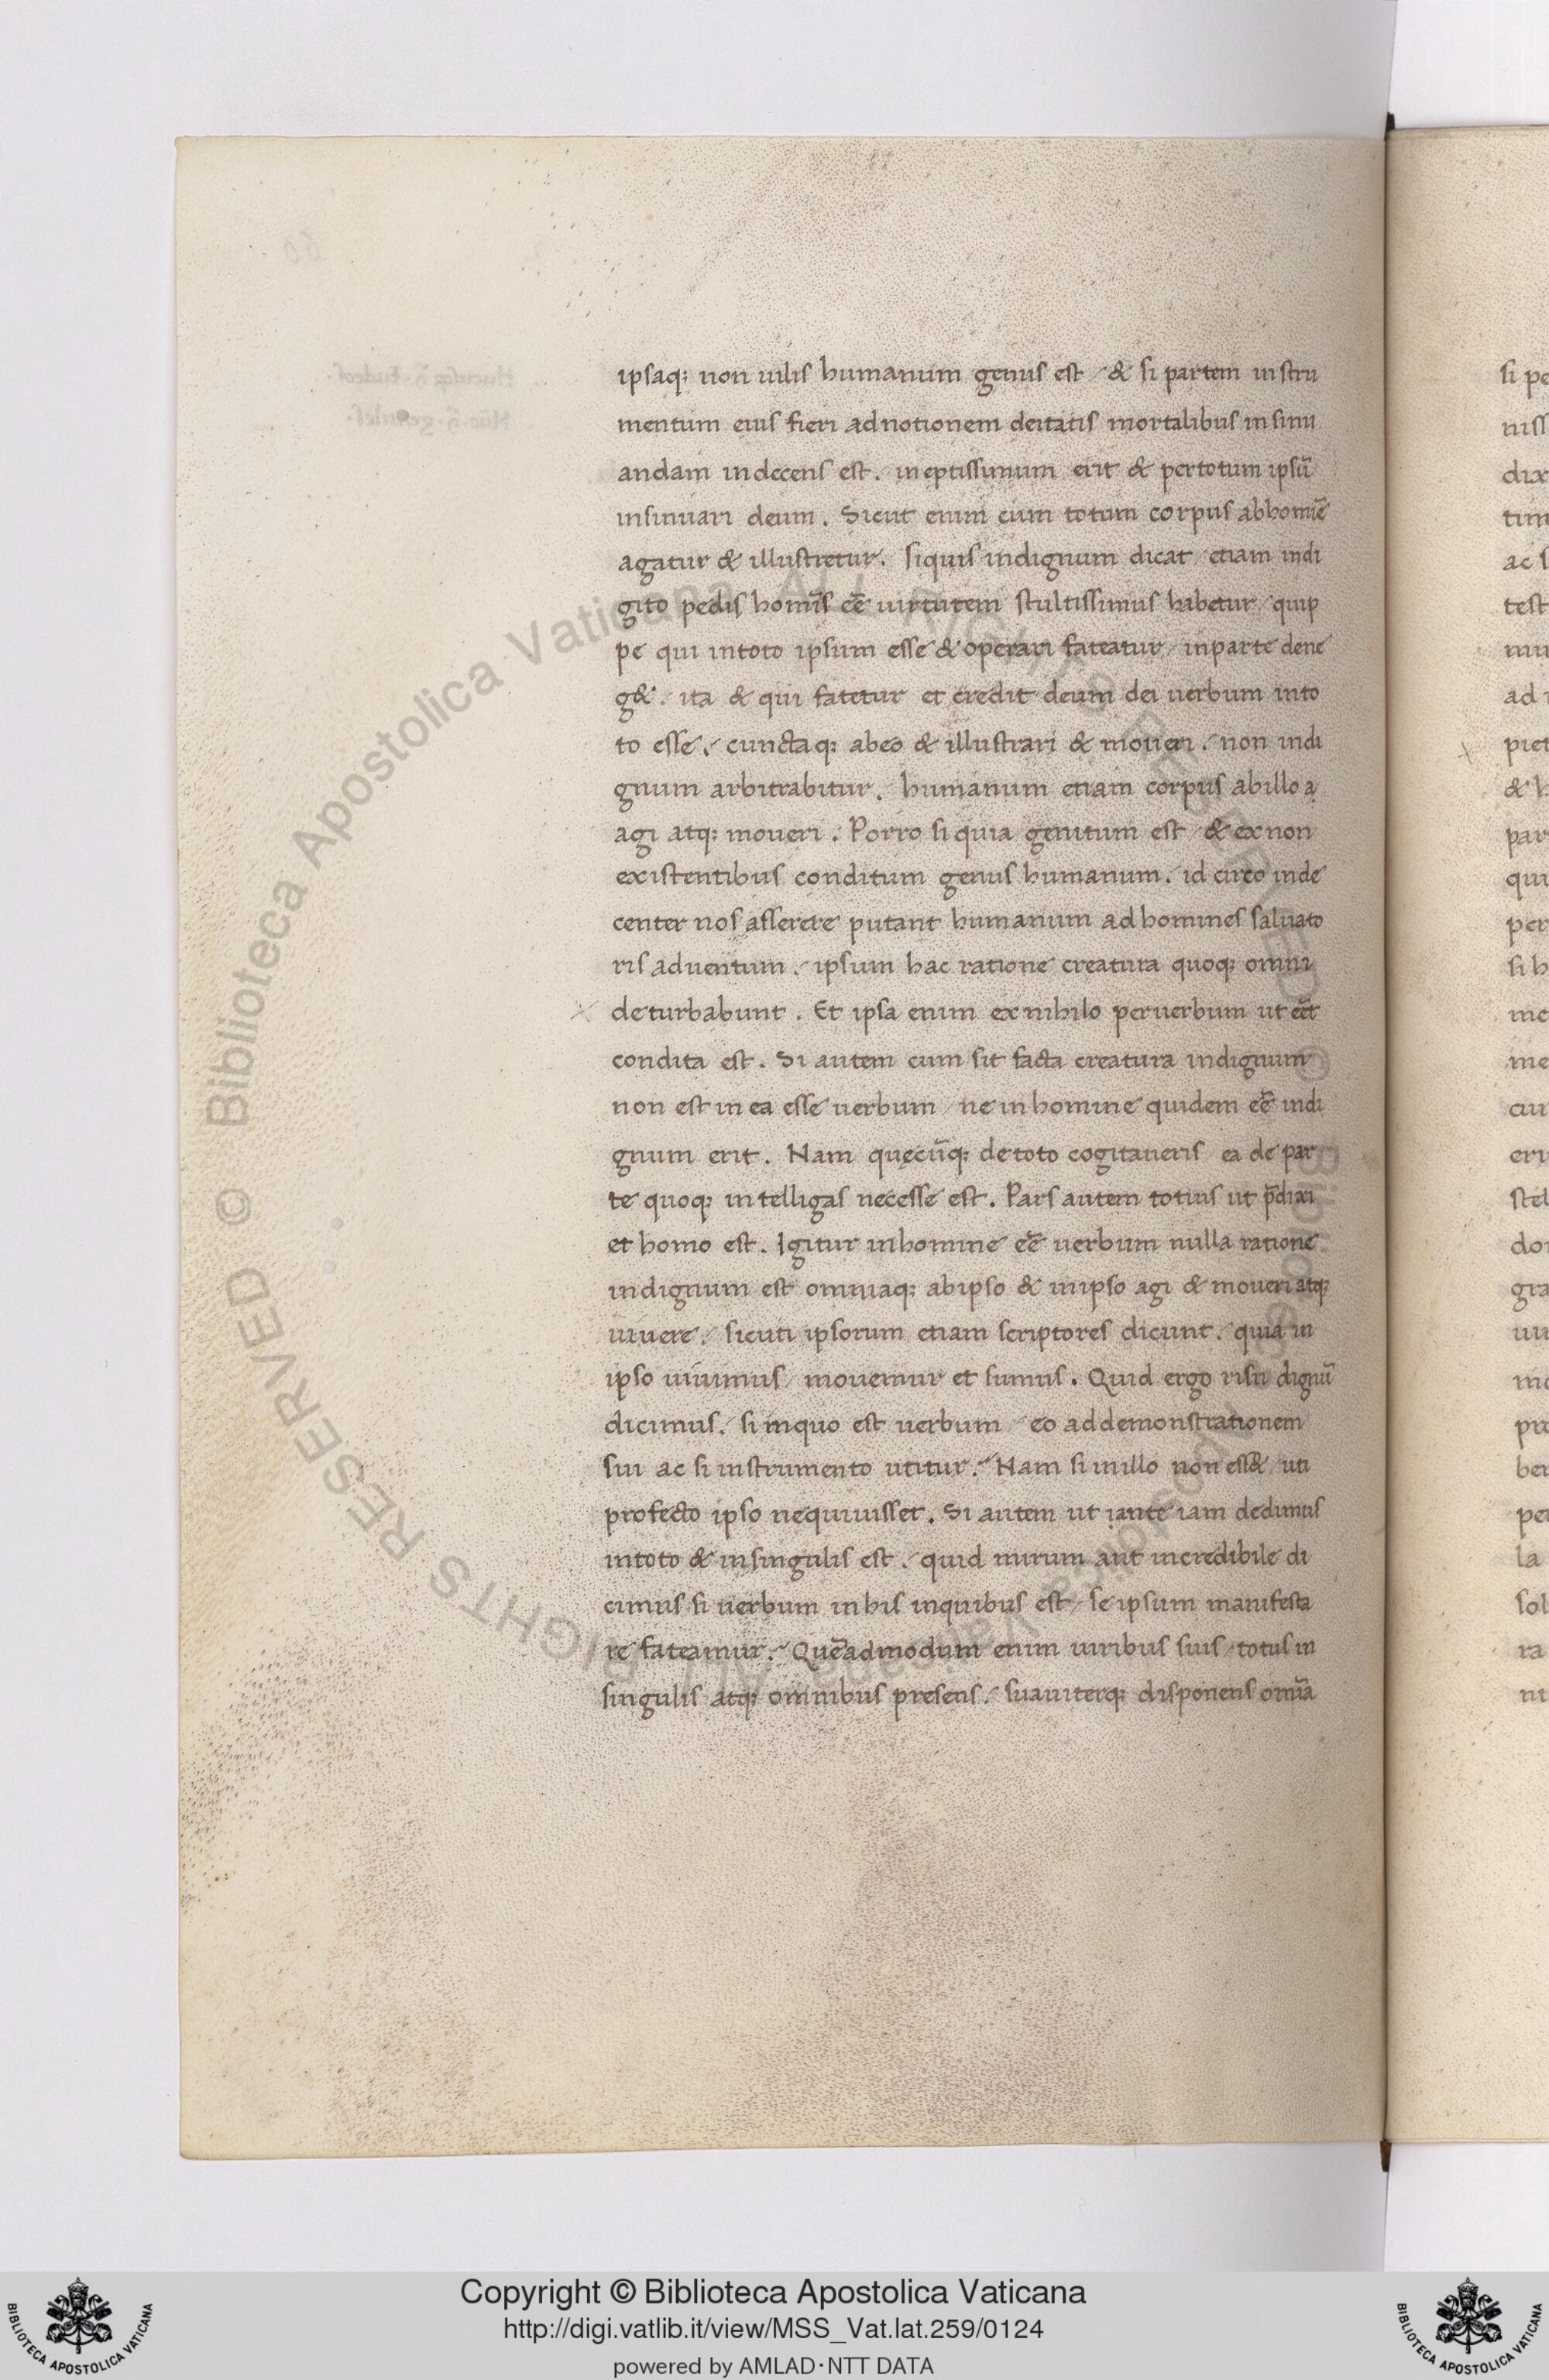 ipsaq; non uilis humanum genus est / & si partem instru
mentum eius fieri ad notionem deitatis mortalibus insinu
andam indecens est. ineptissimum erit & per totum ipsũ
insinuari deum. Sicut enim cum totum corpus ab homĩe
agatur & illustretur. si quis indignum dicat / etiam in di
gito pedis homĩs eẽ uirtutem stultissimus habetur / quip
pe qui in toto ipsum esse & operari fateatur / in parte dene
g&. ita & qui fatetur et credit deum dei uerbum in to
to esse. cunctaq; ab eo & illustrari & moueri. non indi
gnum arbitrabitur. humanum etiam corpus ab illo a
agi atq; moueri. Porro si quia genitum est / & ex non
existentibus conditum genus humanum. id circo inde
center nos asserere putant humanum ad homines saluato
ris aduentum. ipsum hac ratione creatura quoq; omni
deturbabunt. Et ipsa enim ex nihilo per uerbum ut eẽt
condita est. Si autem cum sit facta creatura indignum
non est in ea esse uerbum / ne in homine quidem eẽ indi
gnum erit. Nam quęcũq; de toto cogitaueris ea de par
te quoq; intelligas necesse est. Pars autem totius ut p̃dixi
et homo est. Igitur in homine eẽ uerbum nulla ratione
indignum est omniaq; ab ipso & in ipso agi & moueri atq;
uiuere. sicuti ipsorum etiam scriptores dicunt. quia in
ipso uiuimus / mouemur et sumus. Quid ergo risu dignũ
dicimus. si in quo est uerbum / eo ad demonstrationem
sui ac si instrumento utitur. Nam si in illo non ess& / uti
profecto ipso nequiuisset. Si autem ut iante iam dedimus
in toto & in singulis est. quid mirum aut incredibile di
cimus si uerbum in his in quibus est / se ipsum manifesta
re fateamur. Quẽadmodum enim uiribus suis / totus in
singulis atq; omnibus presens. suauiterq; disponens omĩa
si pe
niss
dix
tim
ac s
test
mu
ad i
piet
& h
par
qui
per
si h
me
me
cui
eri
stel
dor
gra
uu
mo
pro
ber
per
la
sol
ra
ni
© Biblioteca Apostolica Vaticana ALL RIGHTS RESERVED
© Biblioteca Apostolica Vaticana ALL RIGHTS RESERVED
Copyright © Biblioteca Apostolica Vaticana
http://digi.vatlib.it/view/MSS_Vat.lat.259/0124
powered by AMLAD·NTT DATA
BIBLIOTECA APOSTOLICA VATICANA
BIBLIOTECA APOSTOLICA VATICANA